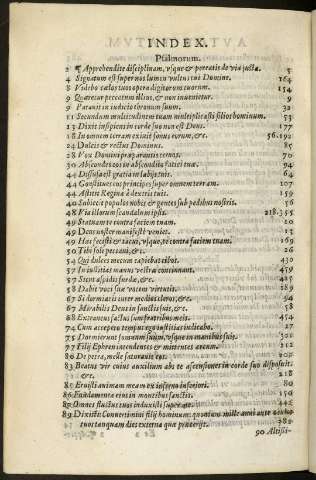 INDEX.
Psalmorum.
2 ¶ Apprehendite disciplinam, vsque & pereatis de via iusta. 5
4 Signatum est super nos lumen vultus tui Domine. 164
8 Videbo cœlos tuos opera digitorum tuorum. 154
9 Quæretur peccatum illius, & non inuenietur. 9
9 Parauit in iudicio thronum suum. 32
11 Secundum multitudinem tuam multiplicasti filios hominum. 53
13 Dixit insipiens in corde suo non est Deus. 177
18 In omnem terram exiuit sonus eorum, &c. 56.
24 Dulcis & rectus Dominus. 85
28 Vox Domini præparantis ceruos. 70
30 Abscondes eos in abscondito faciei tuæ. 94
44 Diffusa est gratia in labijs tuis. 64
44 Constitues eos principes super omnem terram. 107
44 Astitit Regina à dextris tuis. 159
46 Subiecit populos nobis & gentes sub pedibus nostris. 56
48 Via illorum scandalum ipsis. 218.
49 Statuam te contra faciem tuam. 10
49 Deus noster manifestè veniet. 13
49 Hæc fecisti & tacui, vsque, te contra faciem tuam. 169
50 Tibi soli peccaui, &c. 26
54 Qui dulces mecum capiebas cibos. 430
57 In iustitias manus vestræ concinnant. 459
57 Sicut aspidis surdæ, &c.
58 Dabit voci suæ vocem virtutis. 189
67 Si dormiatis inter medios cleros, &c. 94
67 Mirabilis Deus in sanctis suis, &c. 58
68 Extraneus factus sum fratribus meis. 454
74 Cum accepero tempus ego iustitias iudicabo. 27
75 Dormierunt somnum suum, vsque in manibus suis. 301
77 Filij Ephrem intendentes & mittentes arcum. 212
80 De petra, melle saturauit eos. 318
83 Beatus vir cuius auxilium abs te ascensiones in corde suo disposuit.
&c. 218
85 Eruisti animam meam ex inferno inferiori. 80
86 Fundamenta eius in montibus sanctis. 150
87 Omnes fluctus tuos induxisti super me. 442
89 Dixisti: Conuertimini filij hominum, quoniam mille anni ante oculos
tuos tanquam dies externa quæ præterijt.
90 Altissi-